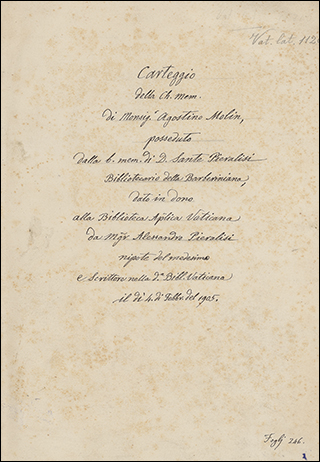 Vat. lat. 112
Carteggio
della Ch. mem.
di Monsigr Agostino Melin,
posseduto
dalla b. mem. di D. Sante Pieralisi
Bibliotecario della Barberiniana,
dato in dono
alla Biblioteca Aplica Vaticana
da Mgr Alessandro Pieralisi
nipote del medesimo
e Scrittore nella da Bibl. Vaticana
il dì 4. di Febbr. del 1905.
Foglj 246.